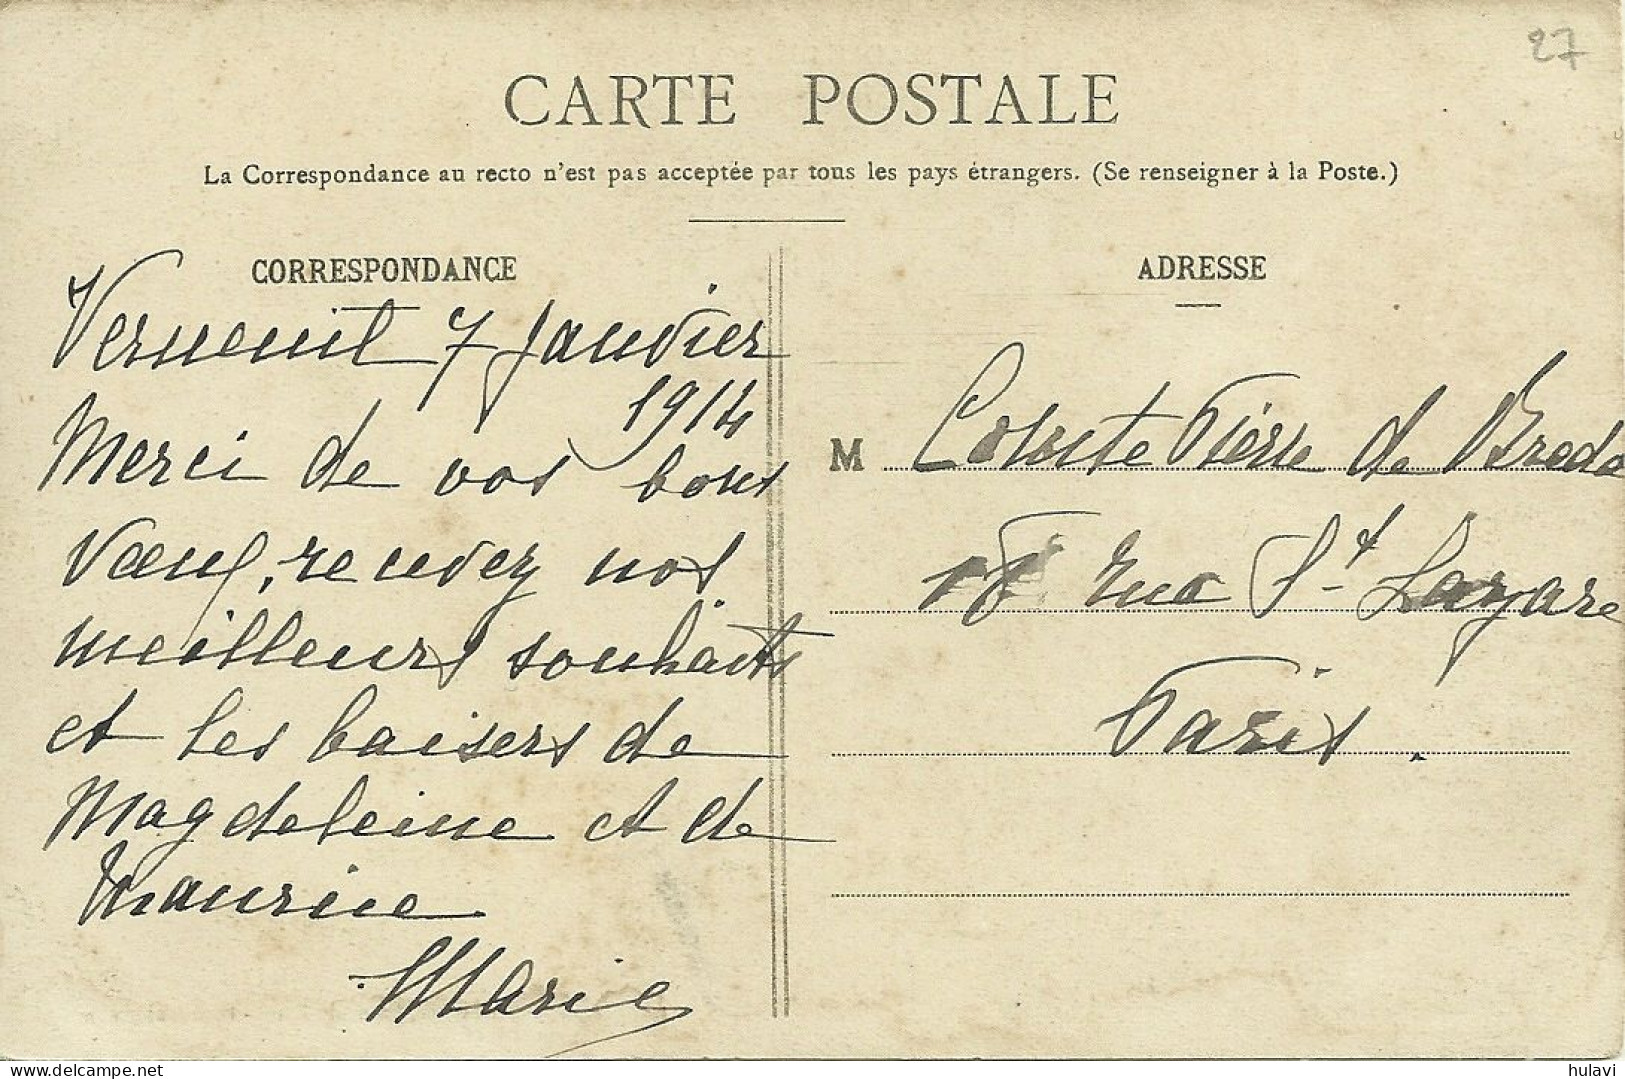 27
CARTE POSTALE
La Correspondance au recto n'est pas acceptée par tous les pays étrangers. (Se renseigner à la Poste.)
CORRESPONDANCE
Verneuil 7 Janvier
1914
Merci de vos bons
vœux, recevez nos
meilleurs souhaits
et les baisers de
Magdeleine et de
Maurice
Marie
ADRESSE
M Comte Pierre de Breda
rue St Lazare
Paris.
delcampe.net
hulavi